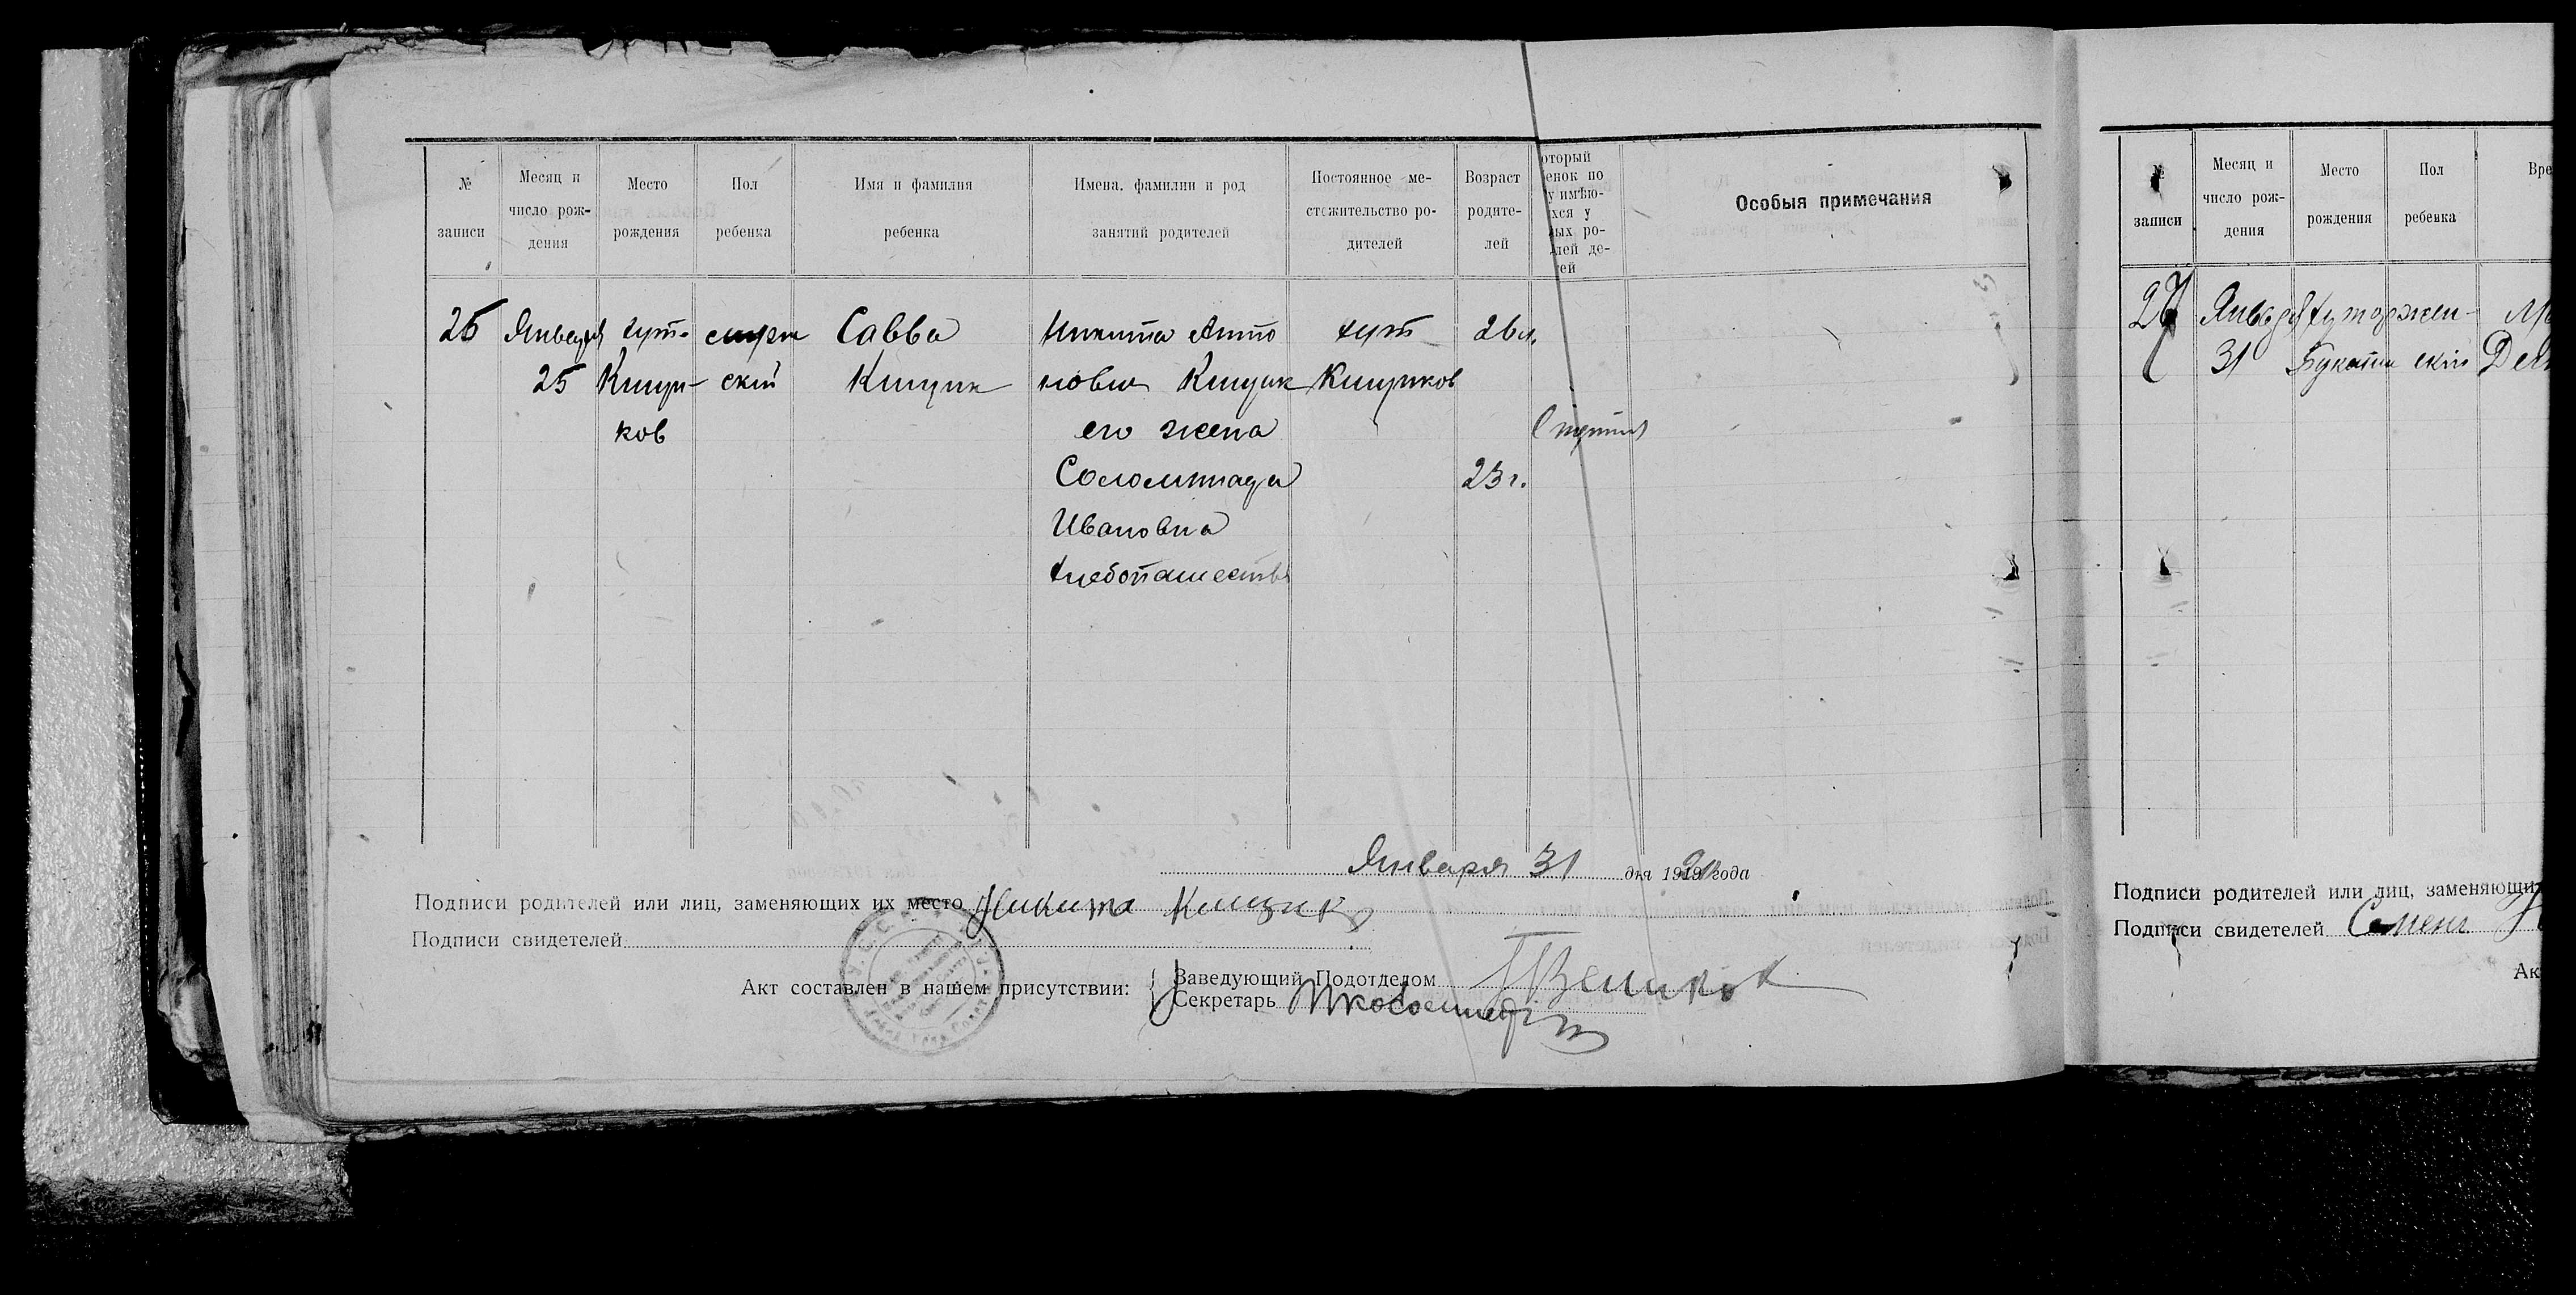 № записи
Месяц и число рож-дения
Место рождения
Пол ребенка
Имя и фамилия ребенка
Имена, фамилии и род занятий родителей
Постоянное ме-стожительство ро-дителей
Возраст родите-лей
оторый
енок по
у имѣю-
хся у
ых ро-
лей де-
тей
Особыя примечания
25 Января хут. Савва Никита Анто хут 26 л.
25 Кищик- ский Кищик нович Кищик Кищиков
ков его жена
23 г.
Ивановна
хлебопашество
Января 31 дня года
Подписи родителей или лиц, заменяющих их место Никита Кищик
Подписи свидетелей
Акт составлен в нашем присутствии:
Заведующий Подотделом
Секретарь
№ записи
Месяц и число рож-дения
Место рождения
Пол ребенка
Вре
27 Января хутор жен-
31 ский
Подписи родителей или лиц, заменяющих
Подписи свидетелей Семен
Ак